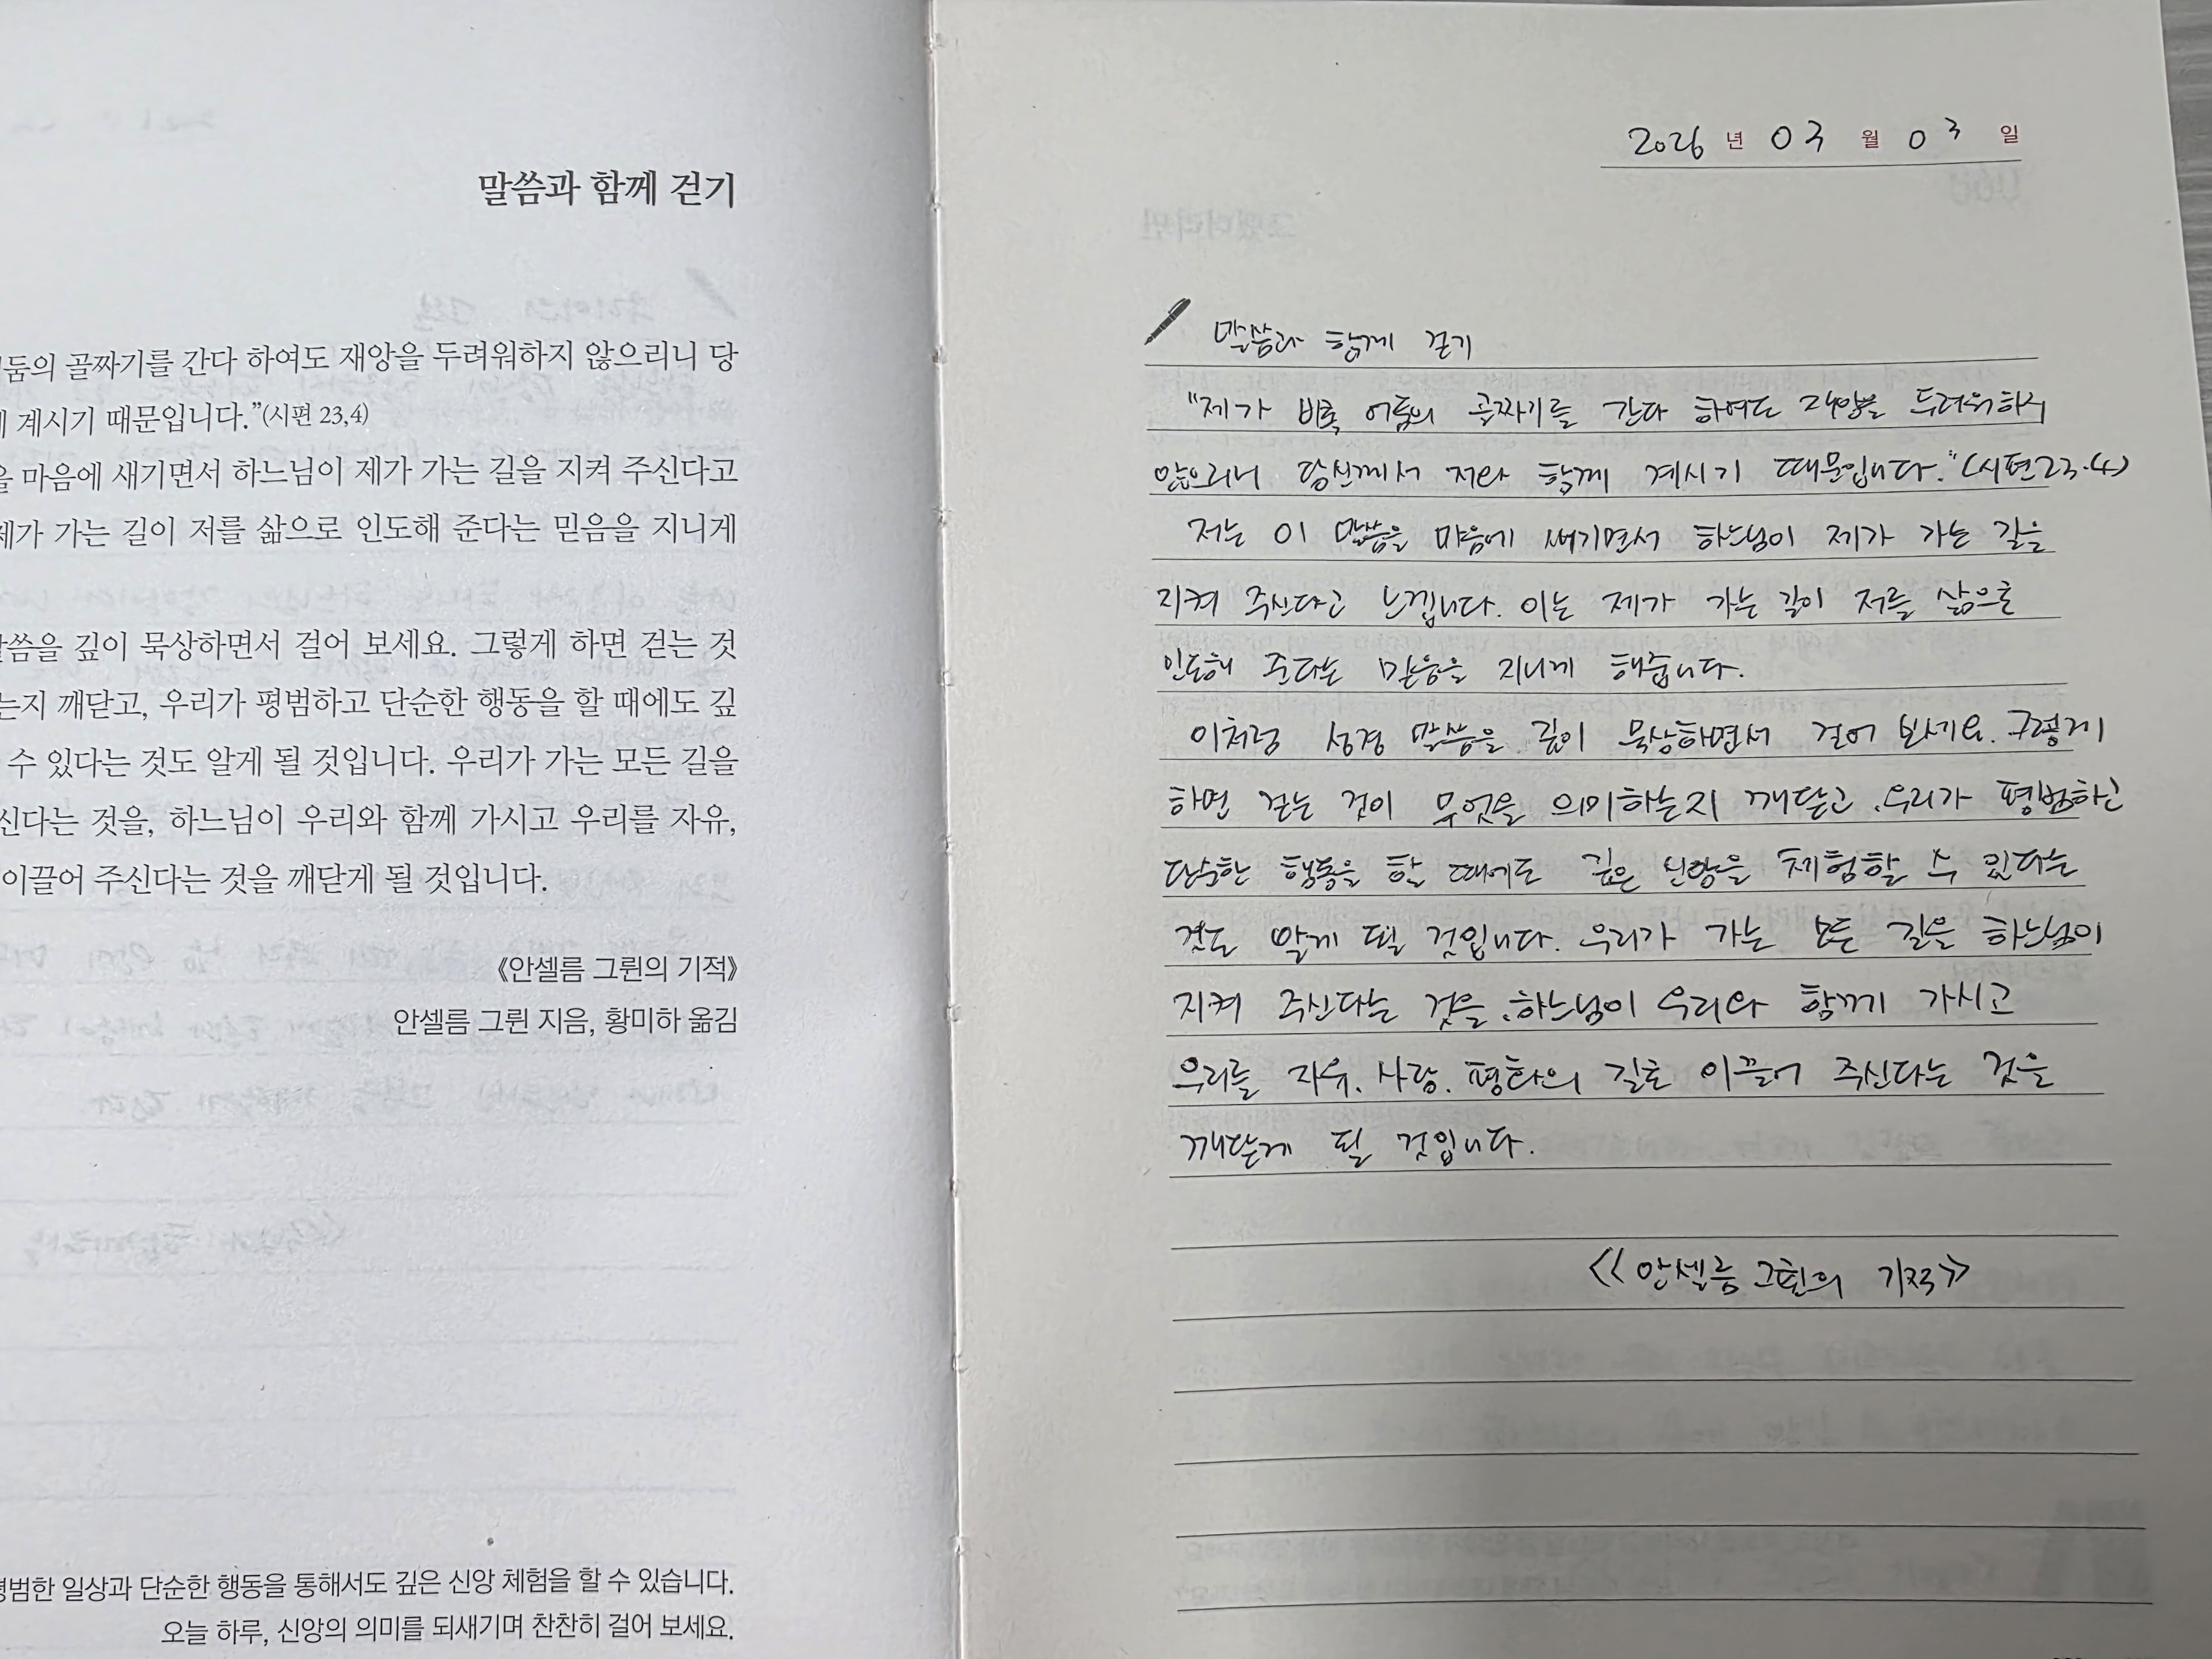 말씀과 함께 걷기
둠의 골짜기를 간다 하여도 재앙을 두려워하지 않으리니 당
계시기 때문입니다.”(시편 23,4)
마음에 새기면서 하느님이 제가 가는 길을 지켜 주신다고
제가 가는 길이 저를 삶으로 인도해 준다는 믿음을 지니게
말씀을 깊이 묵상하면서 걸어 보세요. 그렇게 하면 걷는 것
는지 깨닫고, 우리가 평범하고 단순한 행동을 할 때에도 깊
수 있다는 것도 알게 될 것입니다. 우리가 가는 모든 길을
신다는 것을, 하느님이 우리와 함께 가시고 우리를 자유,
이끌어 주신다는 것을 깨닫게 될 것입니다.
《안셀름 그륀의 기적》
안셀름 그륀 지음, 황미하 옮김
평범한 일상과 단순한 행동을 통해서도 깊은 신앙 체험을 할 수 있습니다.
오늘 하루, 신앙의 의미를 되새기며 찬찬히 걸어 보세요.
2026 년 03 월 03 일
말씀과 함께 걷기
“제가 비록 어둠의 골짜기를 간다 하여도 재앙을 두려워하지
않으리니 당신께서 저와 함께 계시기 때문입니다.”(시편23.4)
저는 이 말씀을 마음에 새기면서 하느님이 제가 가는 길을
지켜 주신다고 느낍니다. 이는 제가 가는 길이 저를 삶으로
인도해 준다는 믿음을 지니게 해줍니다.
이처럼 성경 말씀을 깊이 묵상하면서 걸어 보세요. 그렇게
하면 걷는 것이 무엇을 의미하는지 깨닫고, 우리가 평범하고
단순한 행동을 할 때에도 깊은 신앙을 체험할 수 있다는
것도 알게 될 것입니다. 우리가 가는 모든 길을 하느님이
지켜 주신다는 것을, 하느님이 우리와 함께 가시고
우리를 자유, 사랑, 평화의 길로 이끌어 주신다는 것을
깨닫게 될 것입니다.
《안셀름 그륀의 기적》